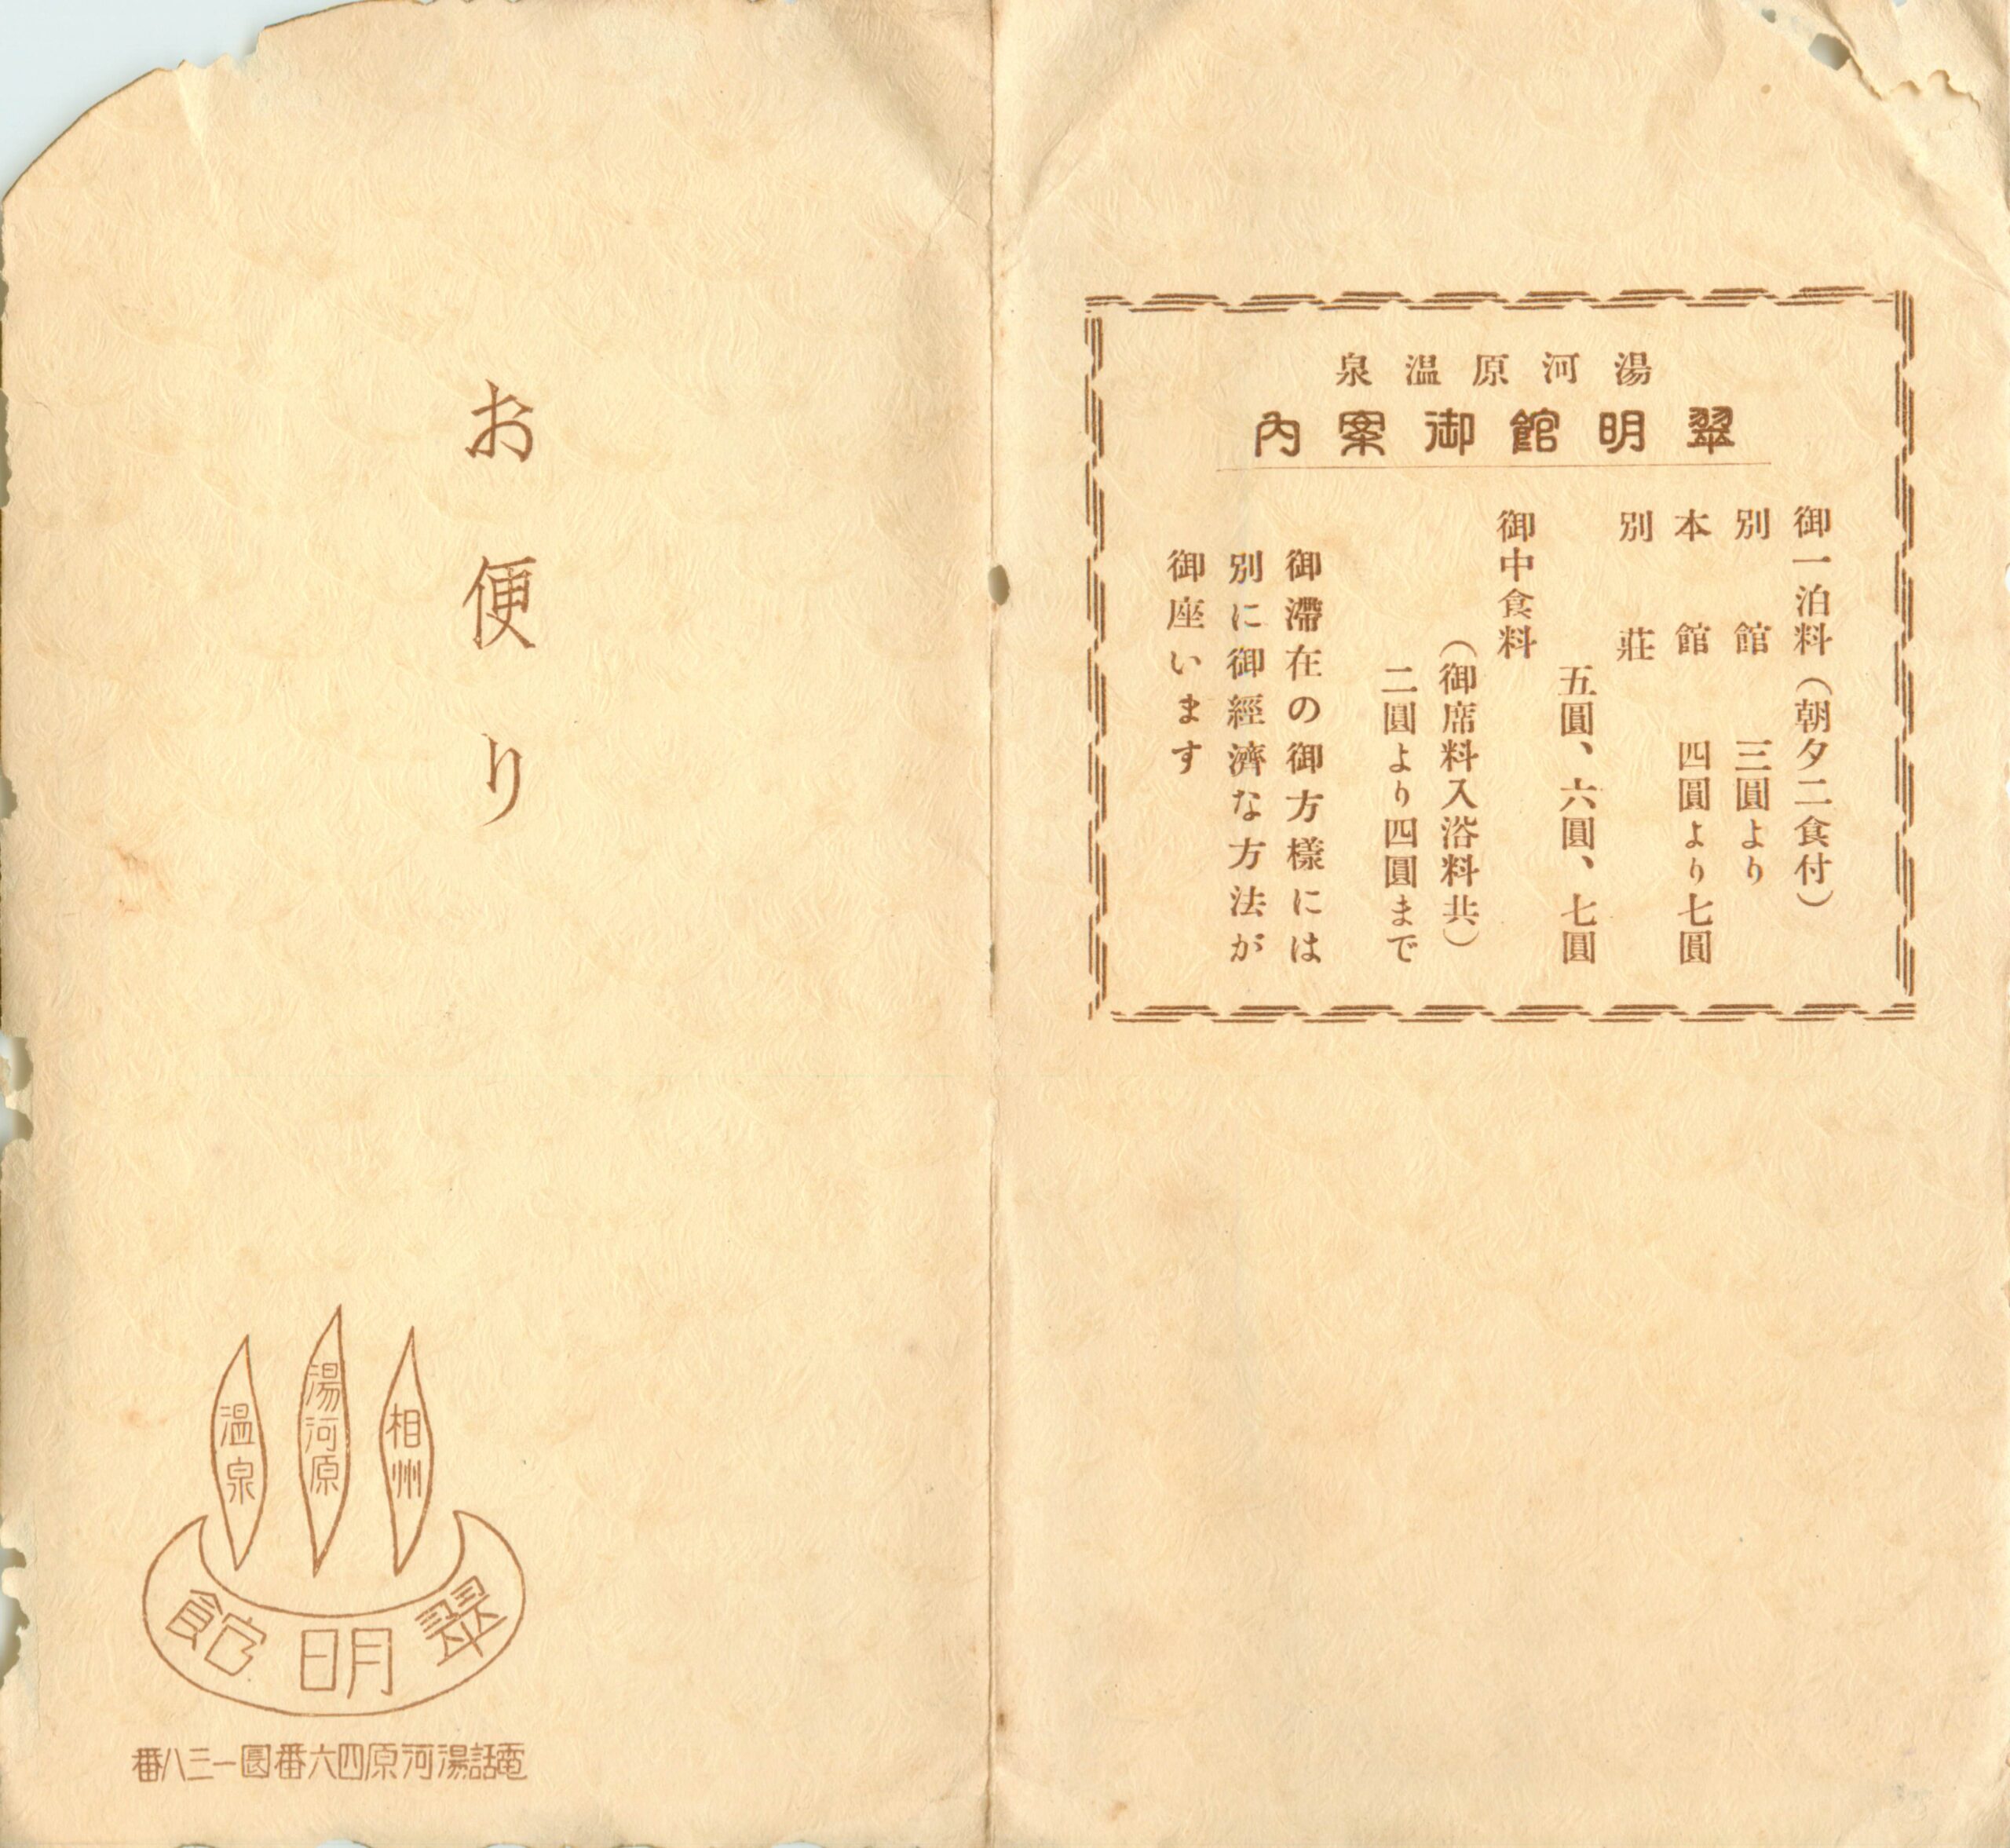 湯河原温泉
翠明館御案内
御一泊料（朝夕二食付）
別館 三圓より
本館 四圓より七圓
別莊
五圓、六圓、七圓
御中食料
（御席料入浴料共）
二圓より四圓まで
御滯在の御方樣には
別に御經濟な方法が
御座います
お便り
相州
湯河原
温泉
翠明館
電話湯河原四六番 一三八番